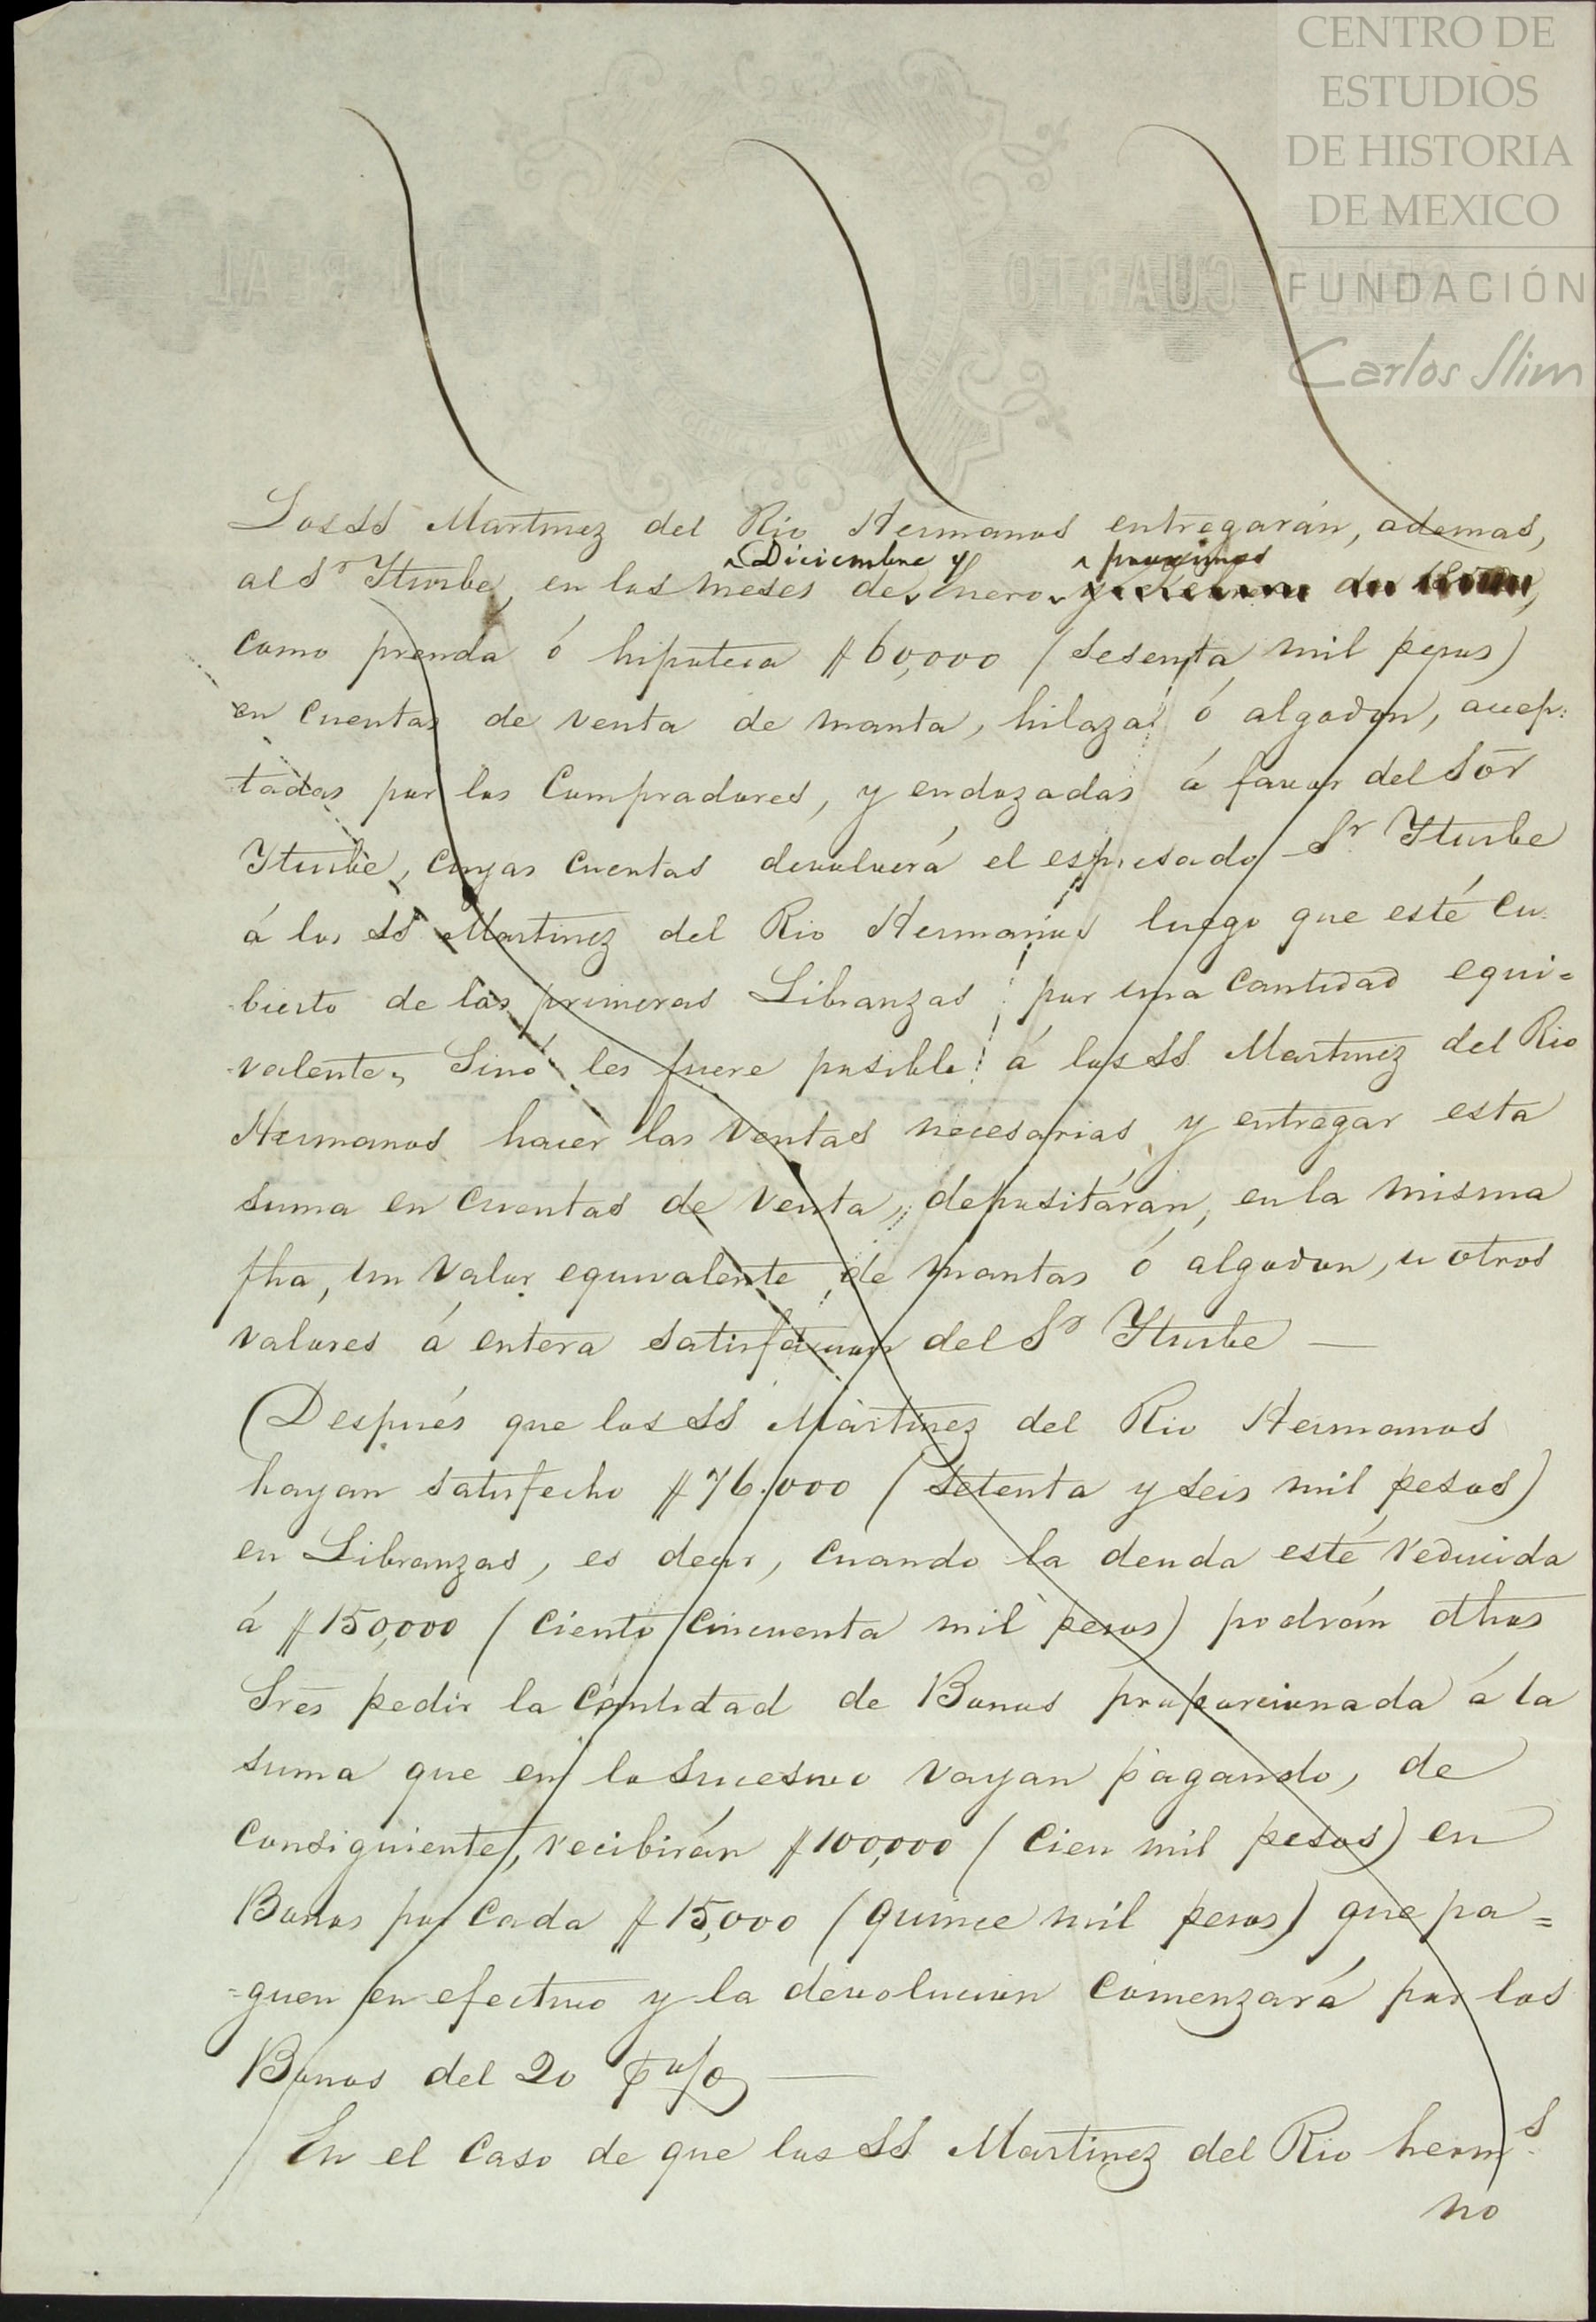 CENTRO DE
ESTUDIOS
DE HISTORIA
DE MEXICO
FUNDACIÓN
Carlos Slim
CUARTO
UN REAL
Los SS Martinez del Rio Hermanos entregarán, ademas,
Diciembre y proximos
al Sr Yturbe, en los meses de Enero
como prenda ó hipoteca $60,000 (Sesenta mil pesos)
en Cuentas de venta de manta, hilaza ó algodon, acep-
tadas por los Compradores, y endozadas á favor del Sōr
Yturbe, cuyas cuentas devolverá el espresado Sr Yturbe
á los SS Martinez del Rio Hermanos luego que esté cu-
bierto de las primeras Libranzas por una Cantidad equi=
valente. Sinó les fuere posible á los SS Martinez del Rio
Hermanos hacer las ventas necesarias y entregar esta
suma en cuentas de venta, depositáran, en la misma
fha, un valor equivalente de mantas ó algodon, u otros
valores á entera satisfaccion del Sr Yturbe —
(Después que los SS Martinez del Rio Hermanos
hayan satisfecho $76.000 (Setenta y seis mil pesos)
en Libranzas, es decir, cuando la deuda esté reducida
á $150,000 (Ciento Cincuenta mil pesos) podrán dhos
Sres pedir la Cantidad de Bonos proporcionada á la
suma que en lo sucesivo vayan pagando, de
consiguiente, recibirán $100,000 (Cien mil pesos) en
Bonos por cada $15,000 (quince mil pesos) que pa=
=guen en efectivo y la devolucion comenzará por los
Bonos del 20 p% —
En el Caso de que los SS Martinez del Rio hermS
no